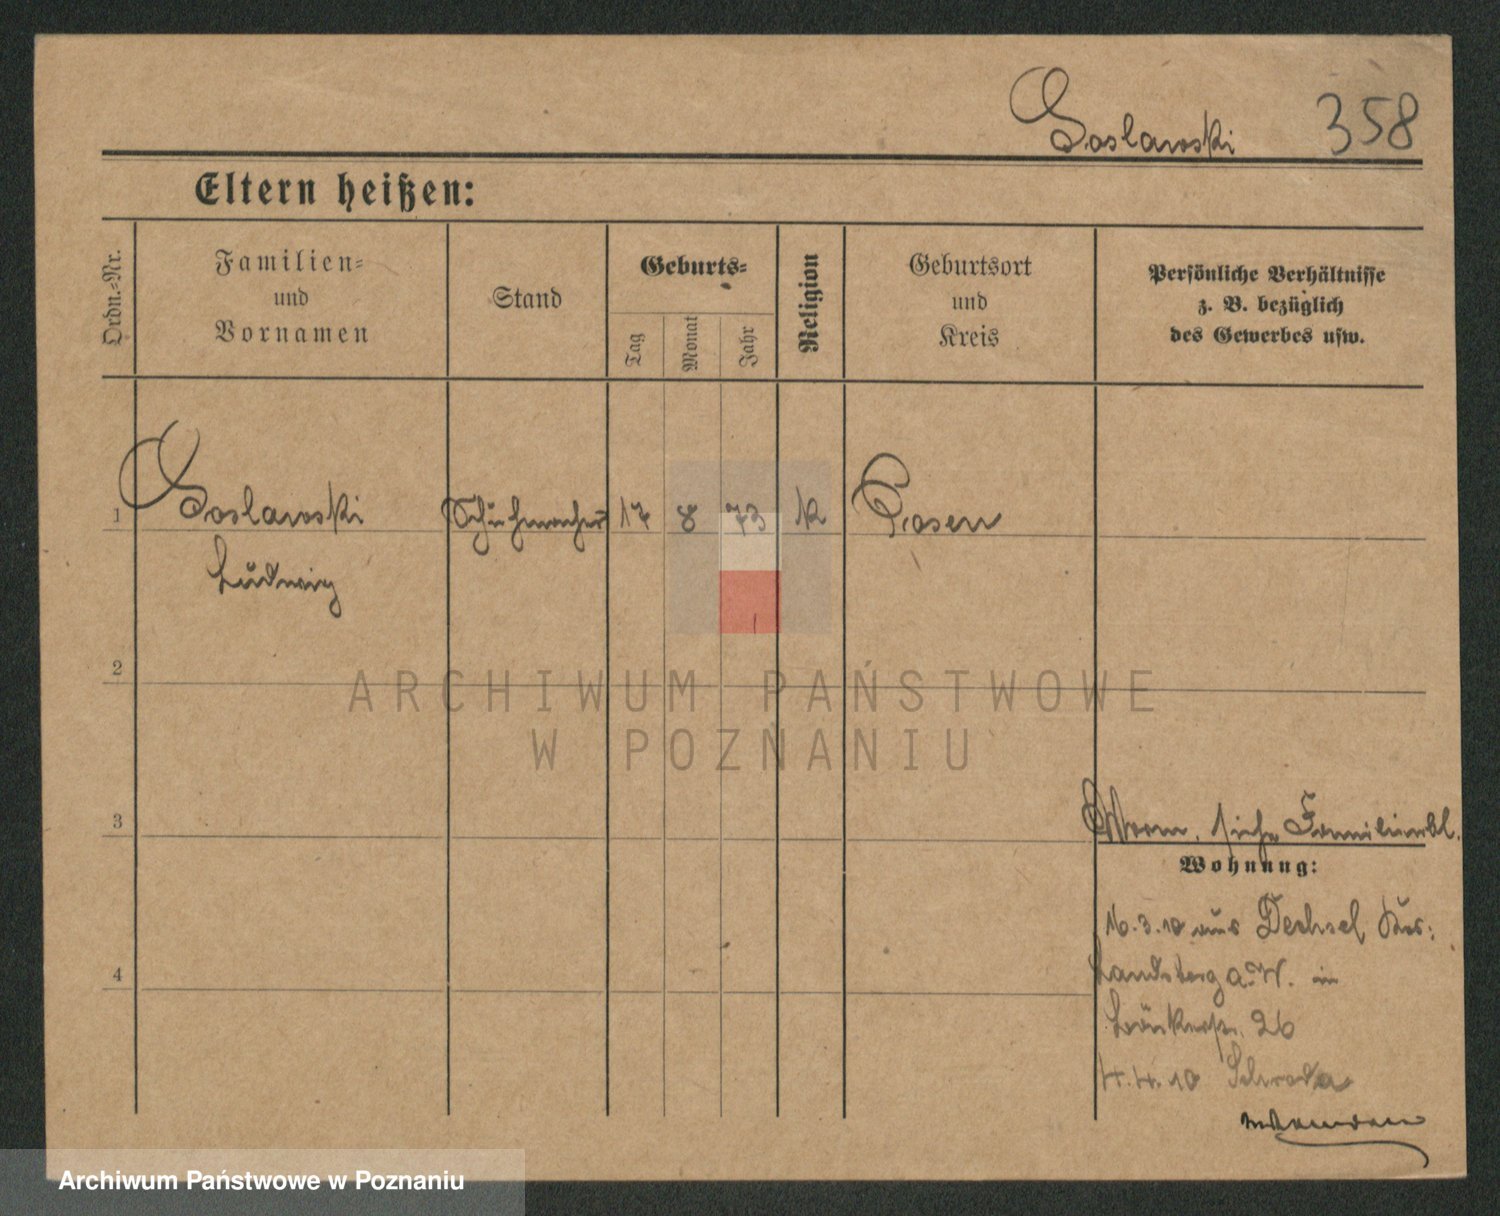 Goslawski 358
Eltern heißen:
Ordn.-Nr.
Familien-
und
Vornamen
Stand
Geburts-
Tag
Monat
Jahr
Religion
Geburtsort
und
Kreis
Persönliche Verhältnisse
z. B. bezüglich
des Gewerbes usw.
1 Goslawski Schuhmacher 17 8 73 k Posen
Ludwig
2
ARCHIWUM PAŃSTWOWE
W POZNANIU
3
Worm. siehe Familienbl.
Wohnung:
16.3.10 aus Dechsel Krs:
4
Landsberg a. W. in
26
4.4.10 Schroda
Archiwum Państwowe w Poznaniu